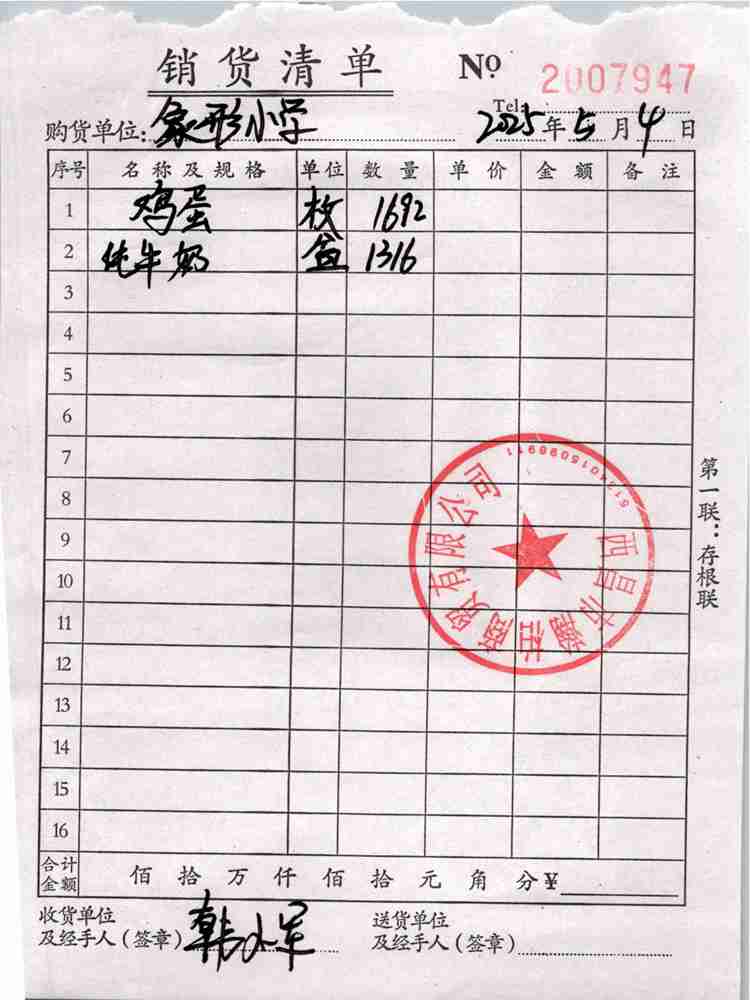 销货清单 Nº 2007947
Tel:
购货单位:象形小学 2025年5月4日
序号 名称及规格 单位 数量 单价 金额 备注
1 鸡蛋 枚 1692
2 纯牛奶 盒 1316
3
4
5
6
7
8
9
10
11
12
13
14
15
16
西昌市 社商贸有限公司
第一联:存根联
合计金额 佰拾万仟佰拾元角分¥
收货单位 送货单位
及经手人(签章)韩小军 及经手人(签章)